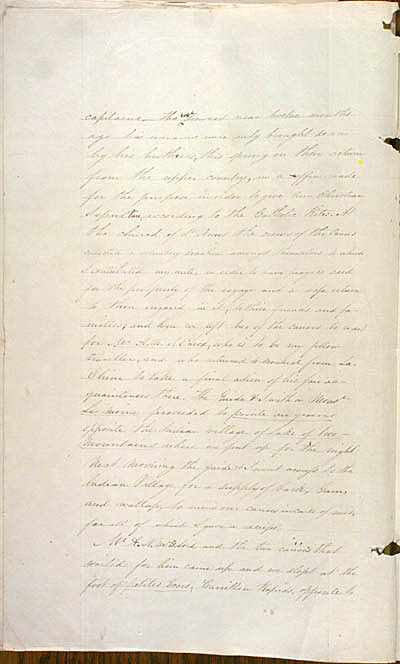 capitaine. Tho' drowned near twelve months
ago his remains were only brought down
by his brothers, this spring on their return
from the upper country, in a coffin made
for the purpose in order to give him Christian
according to the Catholic Rites. At
the church of St Anns the crews of the canoes
a voluntary donation amongst themselves to which
I contributed my mite, in order to have prayers said
for the prosperity of the voyage and a safe return
to those engaged in it, to their friends and fa-
milies; and here we left two of the canoes to wait
for Mr. A. N. McLeod, who is to be my fellow
traveller, and who returned to Montreal from La-
Chine to take a final adieu of his fair ac-
quaintances there. The Guide & I with a Monsr
Le moine proceeded to
opposite the Indian village of Lake of two
Mountains where we put up for the night
Next morning the guide & I went across to the
Indian Village for a supply of bark, Gum
and wattap, to mend our canoes in case of need
for all of which I gave a receipt.
Mr A. N. McLeod and the two canoes that
waited for him came up and we slept at the
foot of petites Carrillon Rapids, opposite to